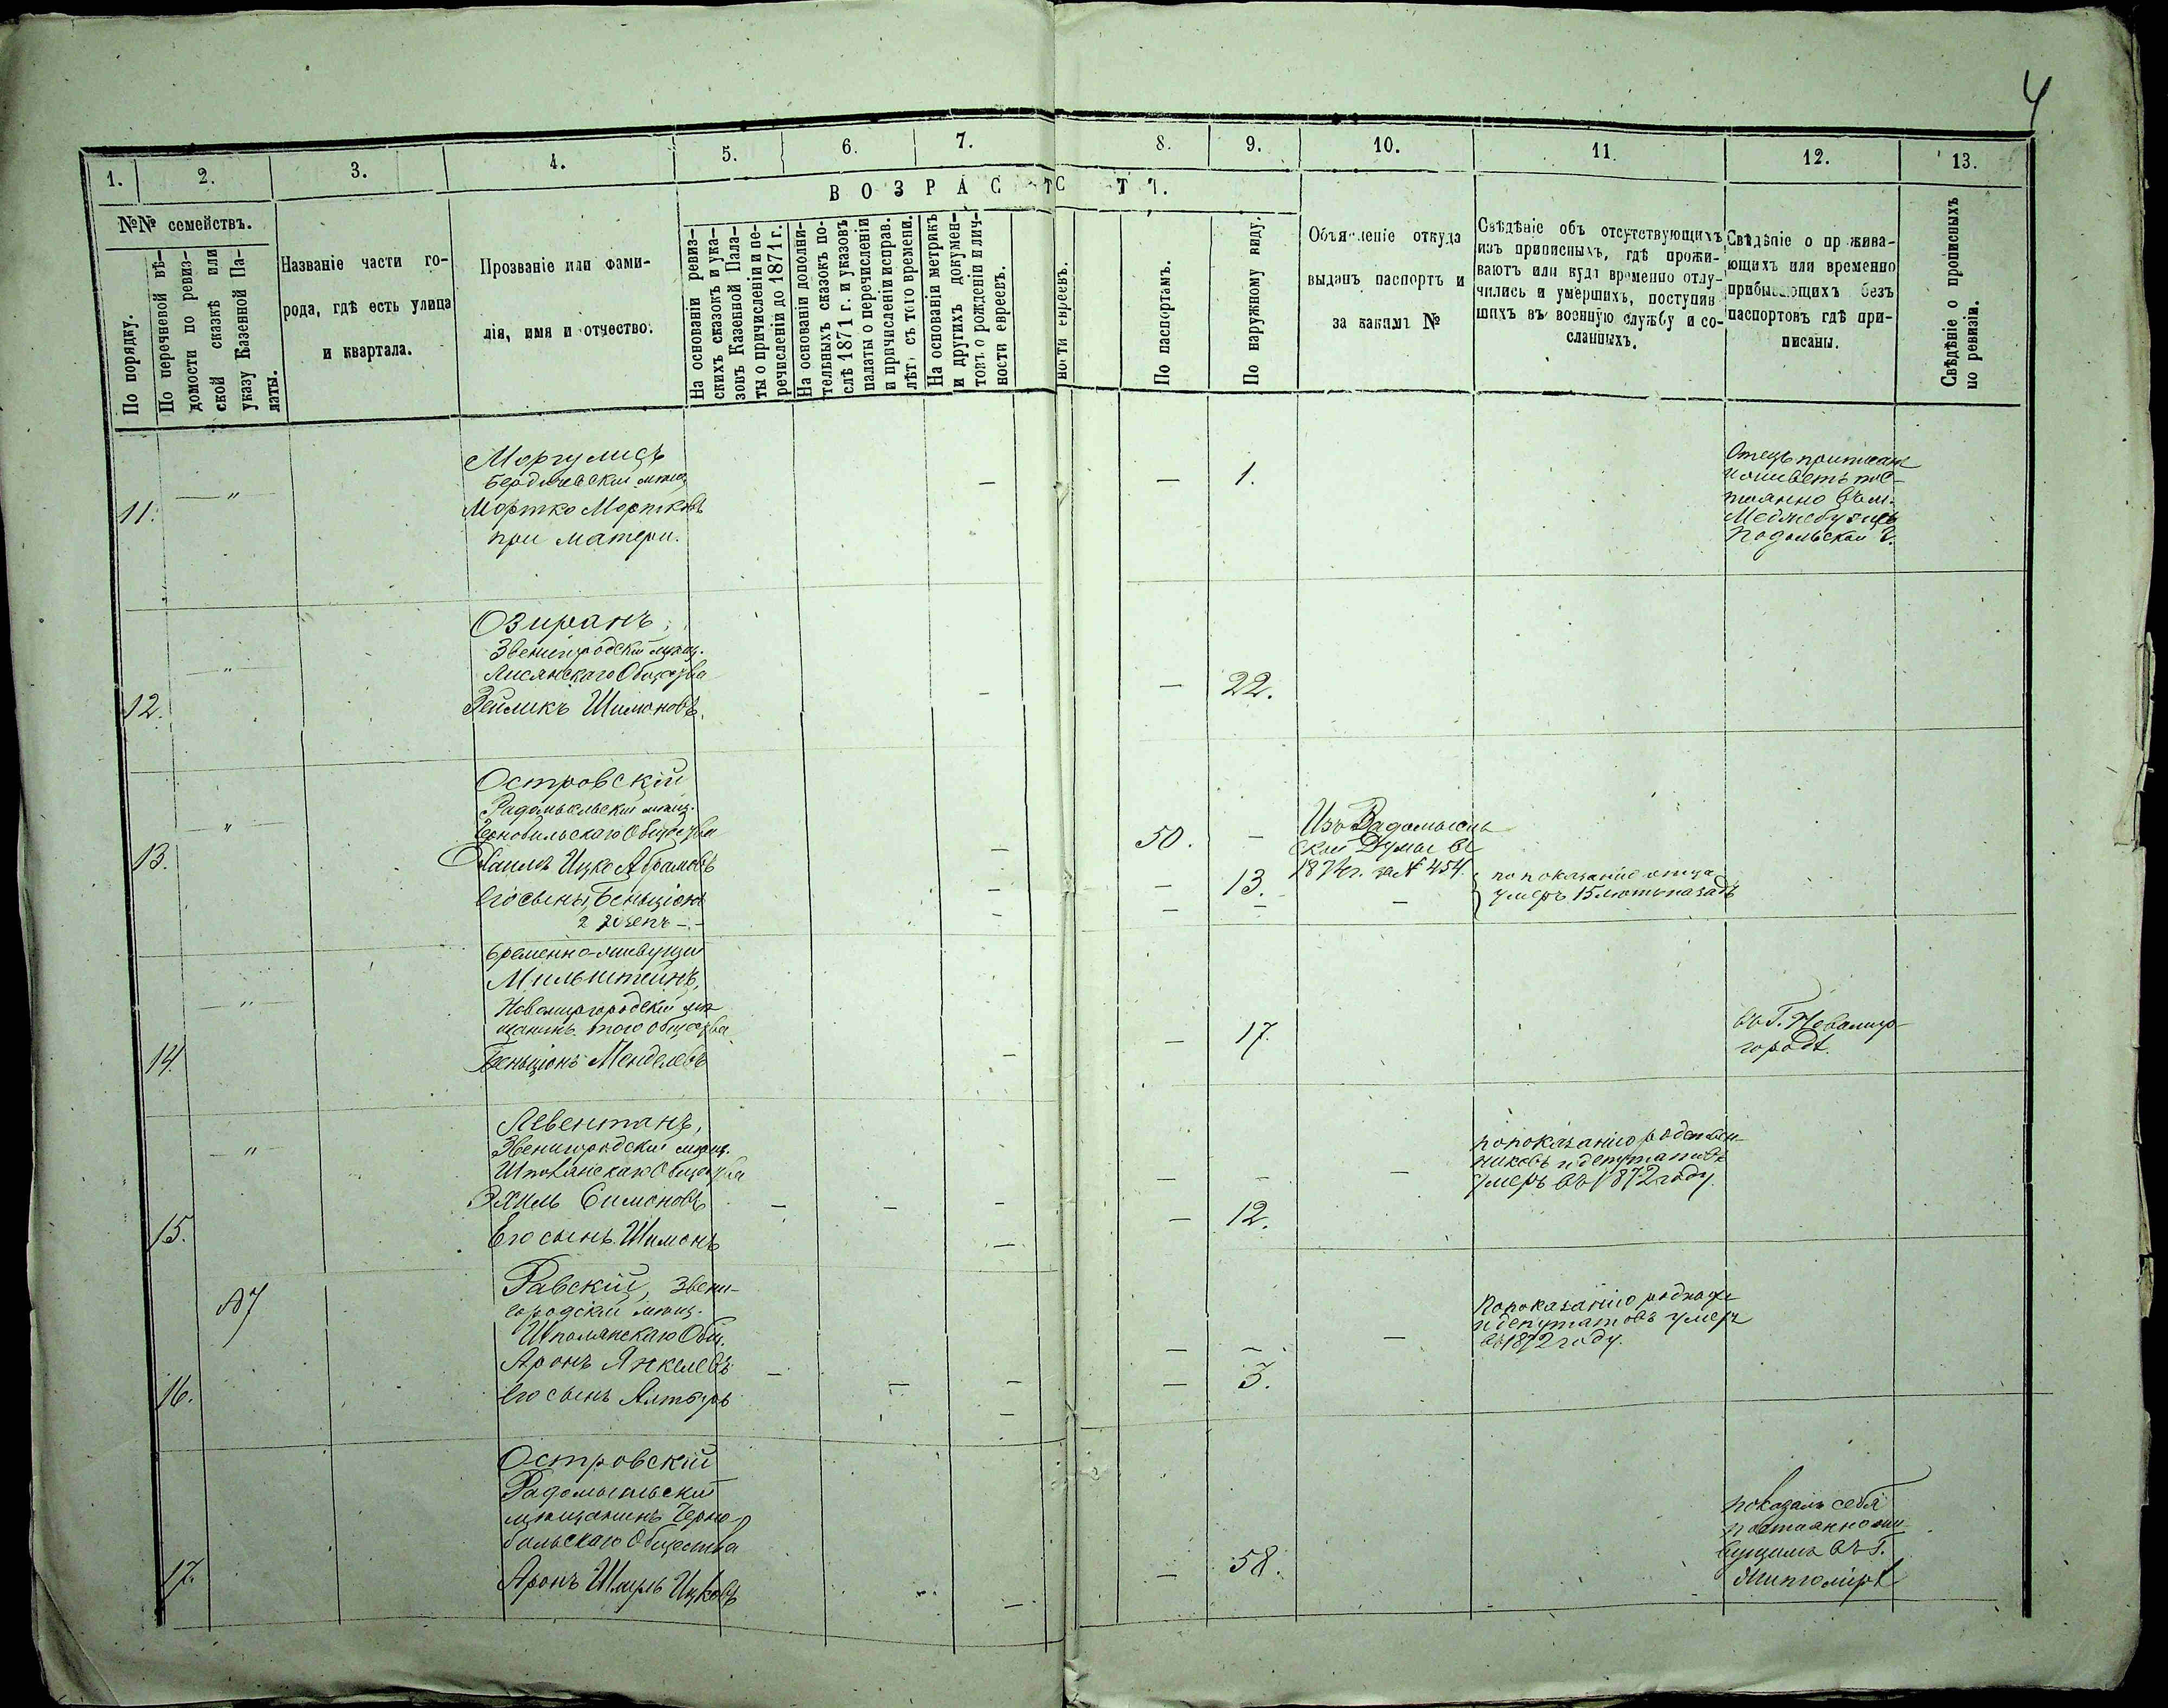 4
1. 2. 3. 4. 5. 6. 7. 8. 9. 10. 11. 12. 13.
№№ семействъ.
По порядку.
По перечневой вѣ-
домости по ревиз-
ской сказкѣ или
указу Казенной Па-
латы.
Названіе части го-
рода, гдѣ есть улица
и квартала.
Прозваніе или фами-
лія, имя и отчество.
ВОЗРАСТЪ.
На основаніи ревиз-
скихъ сказокъ и ука-
зовъ Казенной Пала-
ты о причисленіи и пе-
речисленіи до 1871 г.
На основаніи дополни-
тельныхъ сказокъ по-
слѣ 1871 г. и указовъ
палаты о перечисленіи
и причисленіи исправ.
лѣтъ съ того времени.
На основаніи метрикъ
и другихъ докумен-
товъ о рожденіи и лич-
ности евреевъ.
ности евреевъ.
По паспортамъ.
По наружному виду.
Объявленіе откуда
выданъ паспортъ и
за какимъ №
Свѣдѣніе объ отсутствующихъ
изъ приписныхъ, гдѣ прожи-
ваютъ или куда временно отлу-
чились и умершихъ, поступив
шихъ въ военную службу и со-
сланныхъ.
Свѣдѣніе о прожива-
ющихъ или временно
прибывающихъ безъ
паспортовъ гдѣ при-
писаны.
Свѣдѣніе о прописныхъ
по ревизіи.
11. — " —
Моргулисъ
Бердичевскій мѣщ.
Мортко Мортковъ
при матери.
— — 1.
Отецъ приписанъ
и живетъ пос-
тоянно въ м.
Меджебужѣ
Подольской г.
12. — " —
Озиранъ,
Звенигородскій мѣщ.
Лисянскаго Общества
Зейликъ Шимоновъ.
— — 22.
13. — " —
Островскій
Радомысльскій мѣщ.
Чернобыльскаго Общества
Хаимъ Ицко Абрамовъ
— 50. —
Изъ Радомысль
ской Думы въ
1874 г. за № 454.
Его сыны, Беньціонъ
— — 13.
2 Іозепъ — " —
— — — —
по показанію отца
умеръ 15 лѣтъ назадъ
14. — " —
Временно-живущій
Мильштейнъ,
Новомиргородскій мѣ-
щанинъ того общества
Беньціонъ Менделевъ
— — 17.
въ Г. Новомир-
городѣ.
15. — " —
Левентанъ,
Звенигородскій мѣщ.
Шполянскаго Общества
Эхиль Симоновъ
— — — — — —
по показанію родствен-
никовъ и депутатовъ
умеръ въ 1872 году.
Его сынъ Шимонъ
— — 12.
16. 87
Равскій, Звени-
городскій мѣщ.
Шполянскаго Общ.
Аронъ Янкелевъ
— — — — — —
По показанію родныхъ
и депутатовъ умеръ
въ 1872 году.
Его сынъ Алтыръ
— — 3.
17.
Островскій
Радомысльскій
мѣщанинъ Черно-
быльскаго Общества
Аронъ Шмуль Ицковъ
— — 58.
показалъ себя
постоянно жи-
вущимъ въ Г.
Житомірѣ